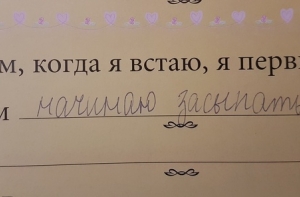 м, когда я встаю, я перв
м начинаю засыпать